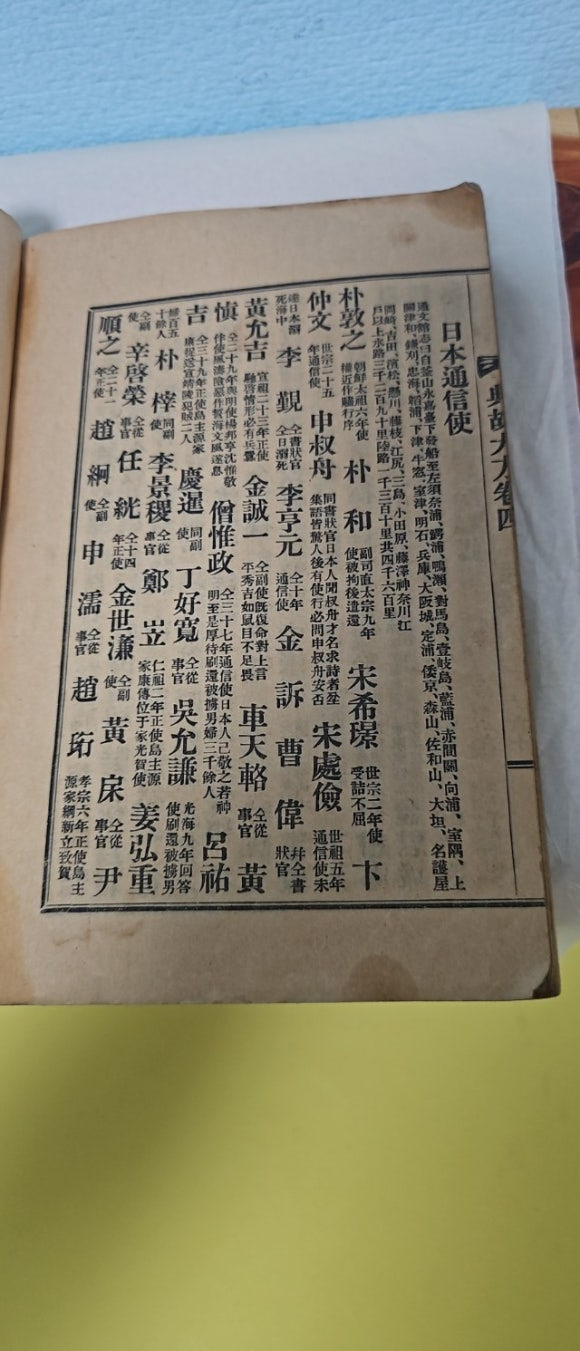 典故大方卷四
日本通信使
通文館志曰自釜山永嘉臺下發船至左須奈浦、鰐浦、鴨瀨、對馬島、壹岐島、藍浦、赤間關、向浦、室隅、上
關津和、鎌刈、忠海、韜浦、下津、牛窓、室津、明石、兵庫、大阪城、定浦、倭京、森山、佐和山、大垣、名護屋
岡崎、吉田、濱松、懸川、藤枝、江尻、三島、小田原、藤澤神奈川江
戶以上水路三千二百九十里陸路一千三百十里共四千六百里
朴敦之 朝鮮太祖六年使權近作贐行序 朴和 副司直太宗九年使被拘後遣還 宋希璟 世宗二年使受詰不屈 卞
仲文 世宗二十五年通信使 申叔舟 同書狀官日本人聞叔舟才名求詩者坌集語皆驚人後有使行必問申叔舟安否 宋處儉 世祖五年通信使未
達日本溺死海中 李覲 仝書狀官仝日溺死 李亨元 仝十年通信使 金訢 曹偉 幷仝書狀官
黃允吉 宣祖二十三年正使馳啓情形必有兵釁 金誠一 仝副使旣復命對上言平秀吉如鼠目不足畏 車天輅 仝從事官 黃
愼 仝二十九年與明使楊邦亨沈惟敬伴使風濤陰惡作誓海文風遂息 僧惟政 仝三十七年通信使日本人已敬之若神明至是厚待刷還被擄男婦三千餘人 呂祐
吉 仝三十九年正使島主源家康捉送宣靖陵犯賊二人 慶暹 同副使 丁好寬 仝從事官 吳允謙 光海九年回答使刷還被擄男
婦百五十餘人 朴梓 同副使 李景稷 仝從事官 鄭岦 仁祖二年正使島主源家康傳位于家光賀使 姜弘重
仝副使 辛啓榮 仝從事官 任絖 仝十四年正使 金世濂 仝副使 黃㦿 仝從事官 尹
順之 仝二十一年正使 趙絅 仝副使 申濡 仝從事官 趙珩 孝宗六年正使島主源家綱新立致賀